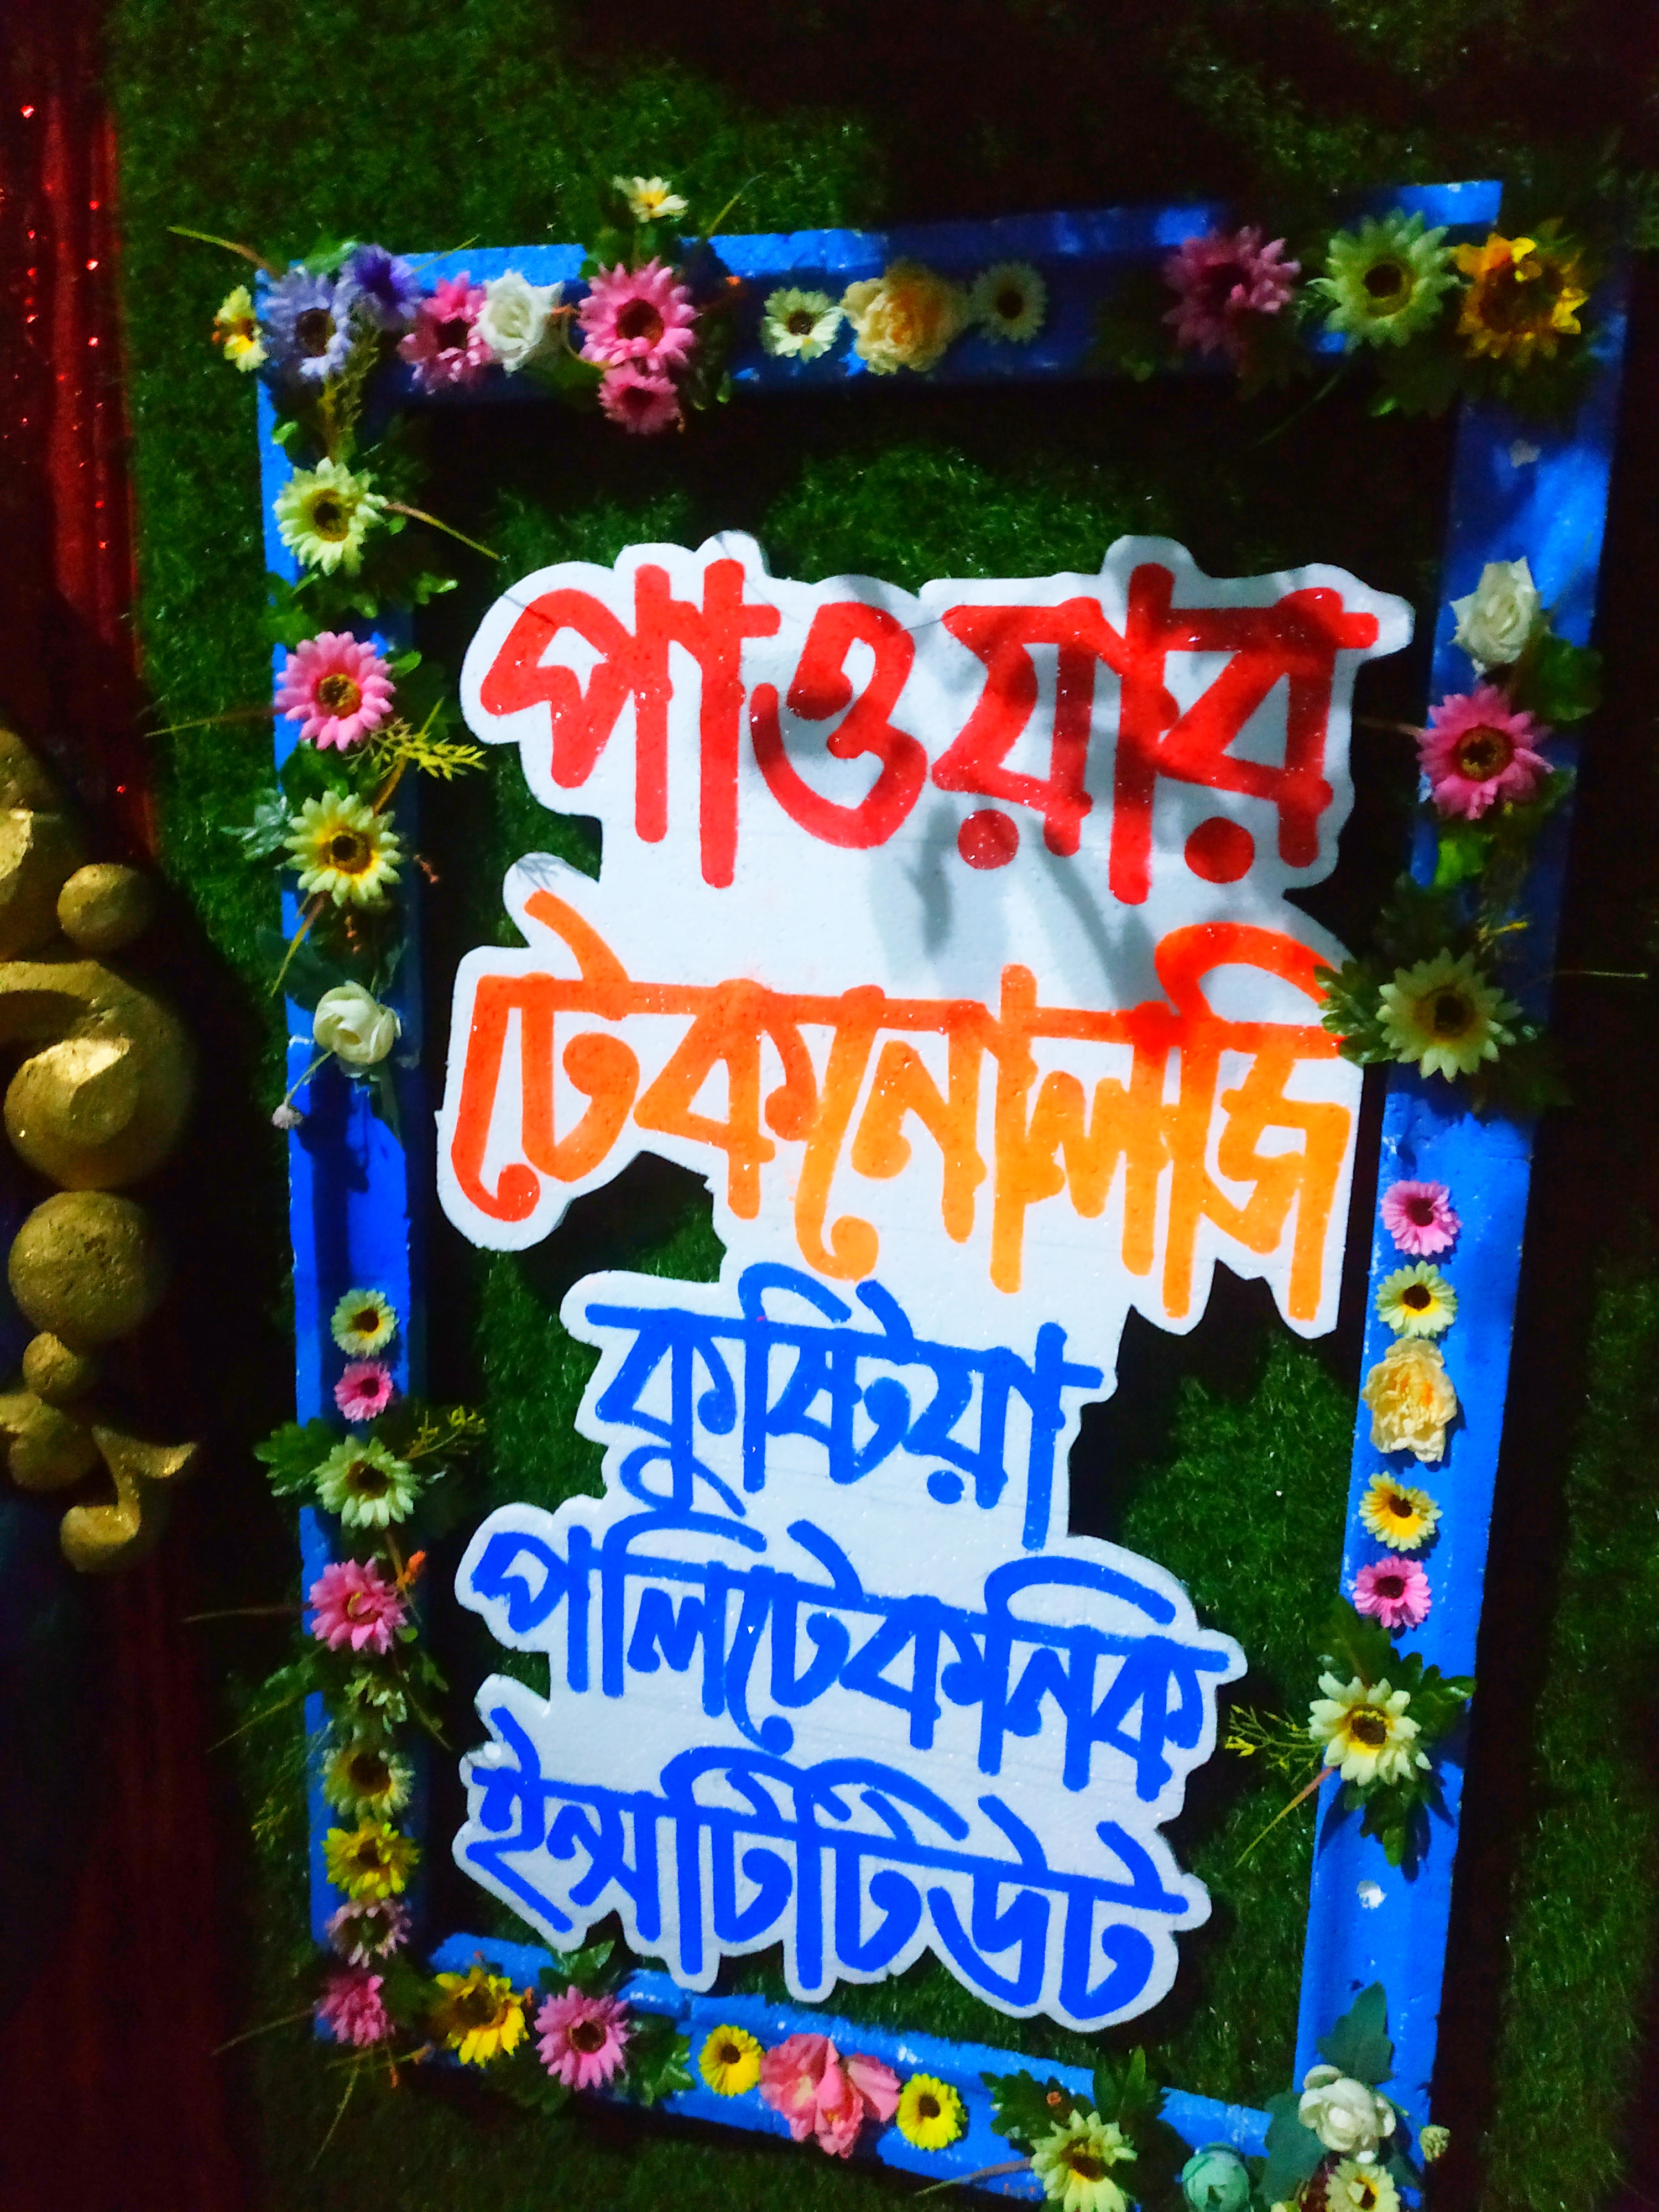 পাওয়ার
টেকনোলজি
কুষ্টিয়া
পলিটেকনিক
ইন্সটিটিউট